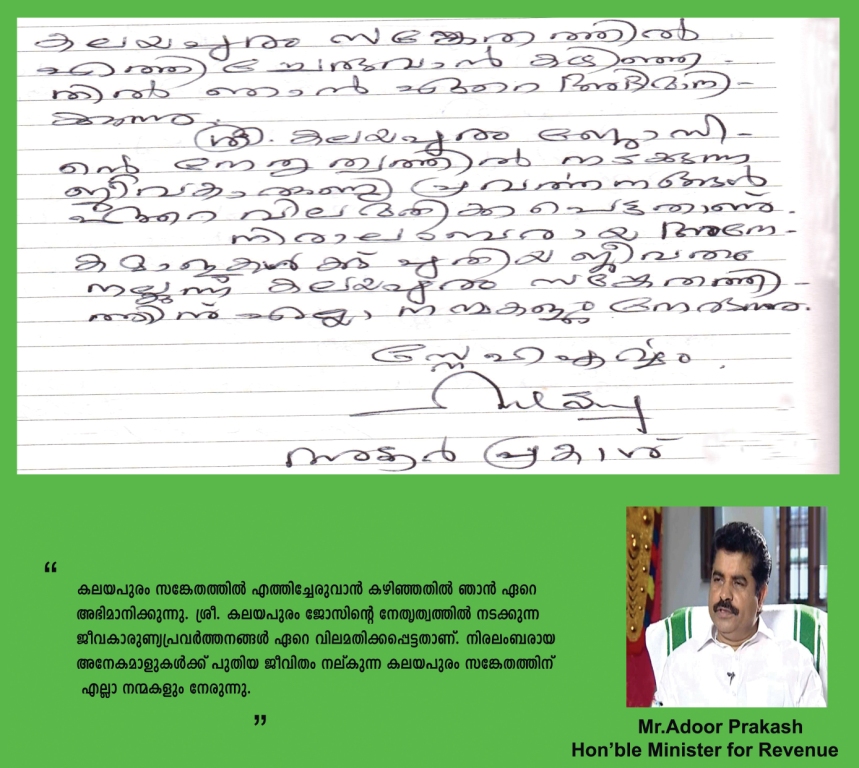 കലയപുരം സങ്കേതത്തിൽ
എത്തി ചേരുവാൻ കഴിഞ്ഞ-
തിൽ ഞാൻ ഏറെ അഭിമാനി-
ക്കുന്നു.
ശ്രീ. കലയപുരം ജോസി-
ന്റെ നേതൃത്വത്തിൽ നടക്കുന്ന
ജീവകാരുണ്യ പ്രവർത്തനങ്ങൾ
ഏറെ വിലമതിക്കപെട്ടതാണ്.
നിരാലംബരായ അനേ-
കമാളുകൾക്ക് പുതിയ ജീവിതം
നല്കുന്ന കലയപുരം സങ്കേതത്തി-
ന് എല്ലാ നന്മകളും നേരുന്നു.
സ്നേഹപൂർവ്വം.
അടൂർ പ്രകാശ്
“
കലയപുരം സങ്കേതത്തിൽ എത്തിച്ചേരുവാൻ കഴിഞ്ഞതിൽ ഞാൻ ഏറെ
അഭിമാനിക്കുന്നു. ശ്രീ. കലയപുരം ജോസിന്റെ നേതൃത്വത്തിൽ നടക്കുന്ന
ജീവകാരുണ്യപ്രവർത്തനങ്ങൾ ഏറെ വിലമതിക്കപ്പെട്ടതാണ്. നിരലംബരായ
അനേകമാളുകൾക്ക് പുതിയ ജീവിതം നല്കുന്ന കലയപുരം സങ്കേതത്തിന്
എല്ലാ നന്മകളും നേരുന്നു.
”
Mr.Adoor Prakash
Hon'ble Minister for Revenue